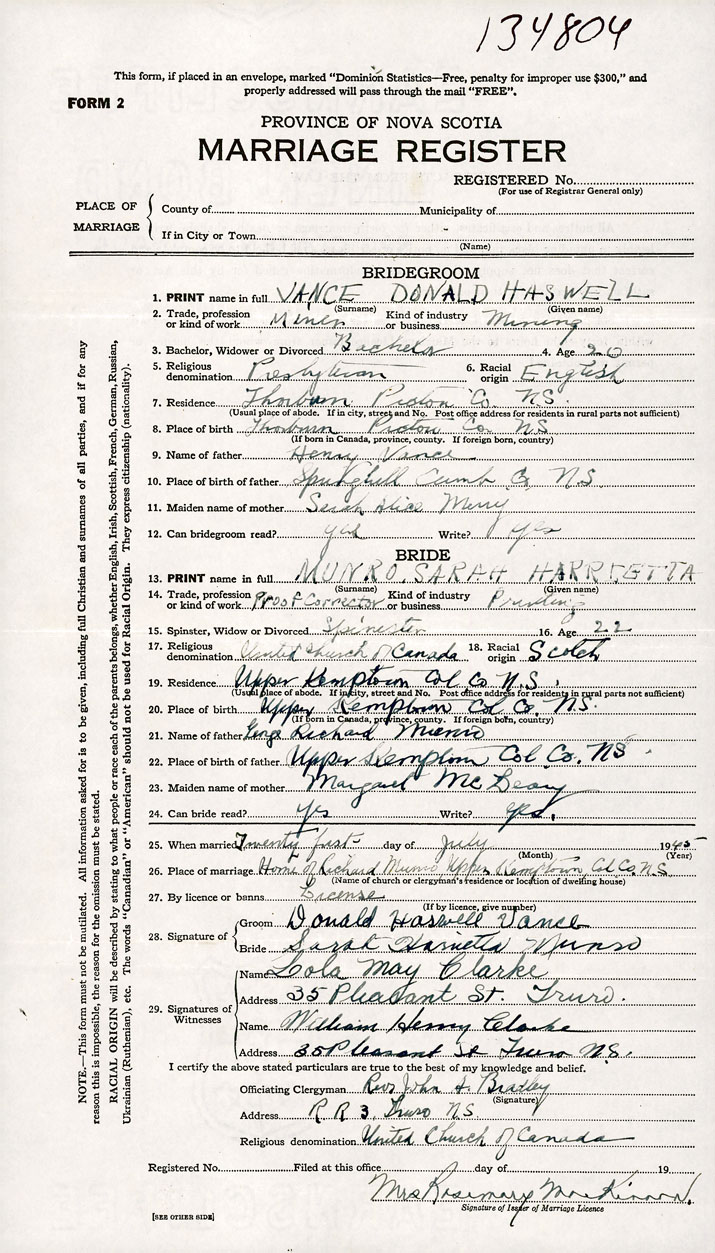 134804
This form, if placed in an envelope, marked "Dominion Statistics—Free, penalty for improper use $300," and
properly addressed will pass through the mail "FREE".
FORM 2
PROVINCE OF NOVA SCOTIA
MARRIAGE REGISTER
REGISTERED No.
(For use of Registrar General only)
PLACE OF MARRIAGE
County of Municipality of
If in City or Town
(Name)
BRIDEGROOM
1. PRINT name in full VANCE DONALD HASWELL
(Surname) (Given name)
2. Trade, profession or kind of work Miner Kind of industry or business Mining
3. Bachelor, Widower or Divorced Bachelor 4. Age 20
5. Religious denomination Presbyterian 6. Racial origin English
7. Residence Thorburn Pictou Co. N.S.
(Usual place of abode. If in city, street and No. Post office address for residents in rural parts not sufficient)
8. Place of birth Thorburn Pictou Co. N.S
(If born in Canada, province, county. If foreign born, country)
9. Name of father Henry Vance
10. Place of birth of father Springhill Cumb. Co. N.S
11. Maiden name of mother Sarah Alice Merry
12. Can bridegroom read? yes Write? yes
BRIDE
13. PRINT name in full MUNRO, SARAH HARRIETTA
(Surname) (Given name)
14. Trade, profession or kind of work Proof Corrector Kind of industry or business Printing
15. Spinster, Widow or Divorced Spinister 16. Age 22
17. Religious denomination United Church of Canada 18. Racial origin Scotch
19. Residence Upper Kemptown Col Co N.S.
(Usual place of abode. If in city, street and No. Post office address for residents in rural parts not sufficient)
20. Place of birth Upper Kemptown Col Co. N.S.
(If born in Canada, province, county. If foreign born, country)
21. Name of father George Richard Munro
22. Place of birth of father Upper Kemptown Col Co. NS.
23. Maiden name of mother Margaret
24. Can bride read? yes Write? yes.
25. When married Twenty first day of July 1945
(Month) (Year)
26. Place of marriage Home of Richard Munro Upper Kemptown Col Co. N.S.
(Name of church or clergyman's residence or location of dwelling house)
27. By licence or banns License
(If by licence, give number)
28. Signature of
Groom Donald Haswell Vance
Bride Sarah Harrietta Munro
29. Signatures of Witnesses
Name Lola May Clarke
Address 35 Pleasant St. Truro.
Name William Henry Clarke
Address 35 Pleasant St Truro N.S.
I certify the above stated particulars are true to the best of my knowledge and belief.
Officiating Clergyman Rev. John A. Bradley
(Signature)
Address R. R 3, Truro N.S.
Religious denomination United Church of Canada
Registered No. Filed at this office day of 19
Mrs Rosemary MacKinnon.
Signature of Issuer of Marriage Licence
[SEE OTHER SIDE]
NOTE.—This form must not be mutilated. All information asked for is to be given, including full Christian and surnames of all parties, and if for any
reason this is impossible, the reason for the omission must be stated.
RACIAL ORIGIN will be described by stating to what people or race each of the parents belongs, whether English, Irish, Scottish, French, German, Russian,
Ukrainian (Ruthenian), etc. The words "Canadian" or "American" should not be used for Racial Origin. They express citizenship (nationality).